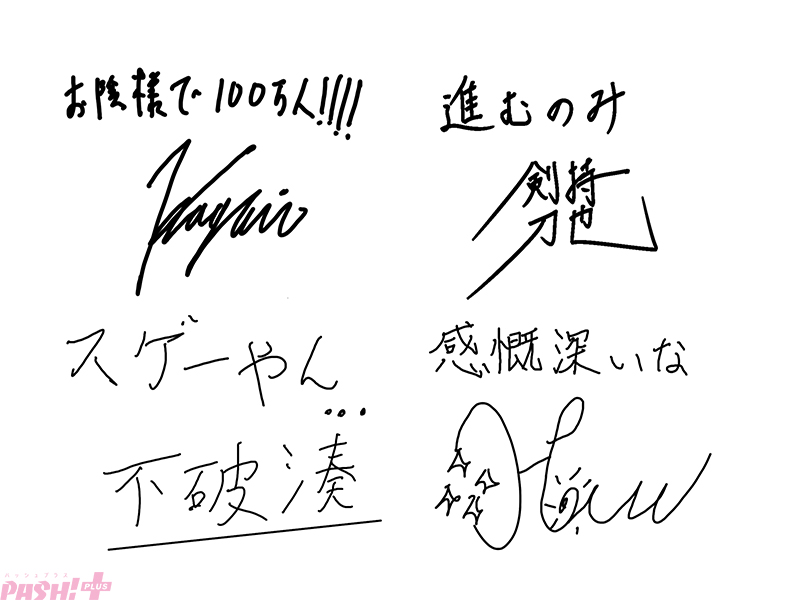 お陰様で100万人!!!!
Kagami
進むのみ
剣持
刀也
スゲーやん...
不破湊
感慨深いな
パッシュプラス
PASH! PLUS